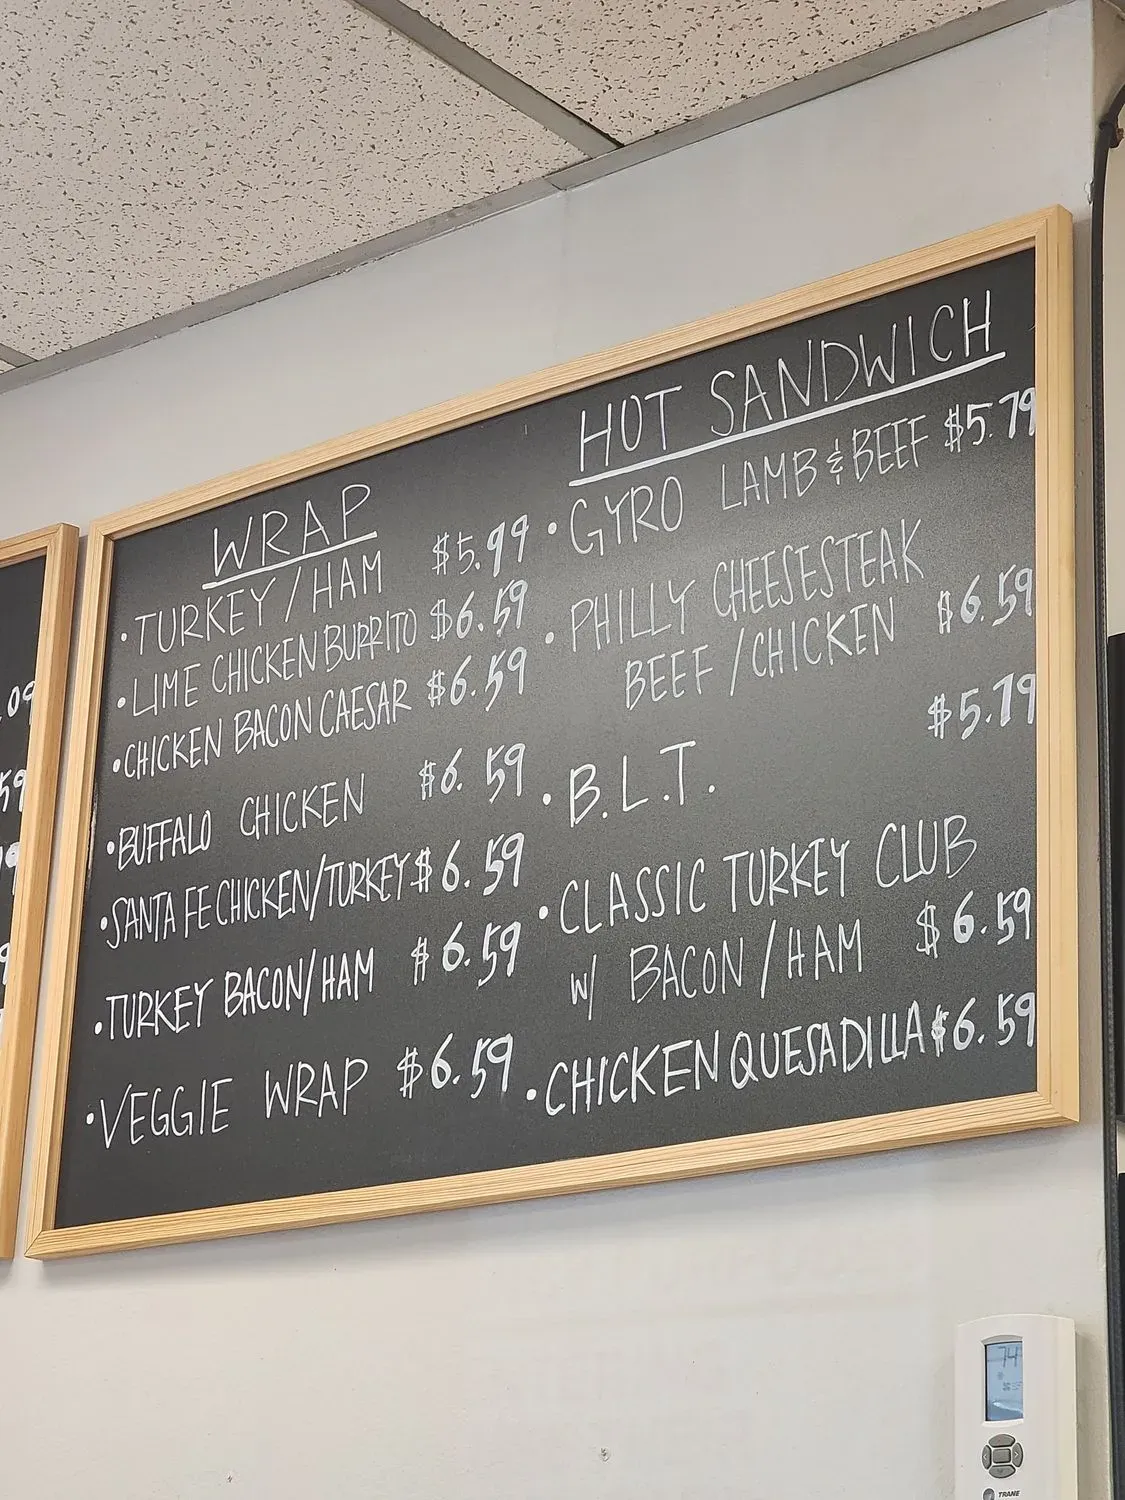 WRAP
• TURKEY/HAM $5.99
• LIME CHICKEN BURRITO $6.59
• CHICKEN BACON CAESAR $6.59
• BUFFALO CHICKEN $6.59
• SANTA FE CHICKEN/TURKEY $6.59
• TURKEY BACON/HAM $6.59
• VEGGIE WRAP $6.59
HOT SANDWICH
• GYRO LAMB & BEEF $5.79
• PHILLY CHEESESTEAK
BEEF/CHICKEN $6.59
• B.L.T. $5.79
• CLASSIC TURKEY CLUB
W/ BACON/HAM $6.59
• CHICKEN QUESADILLA $6.59
74
TRANE